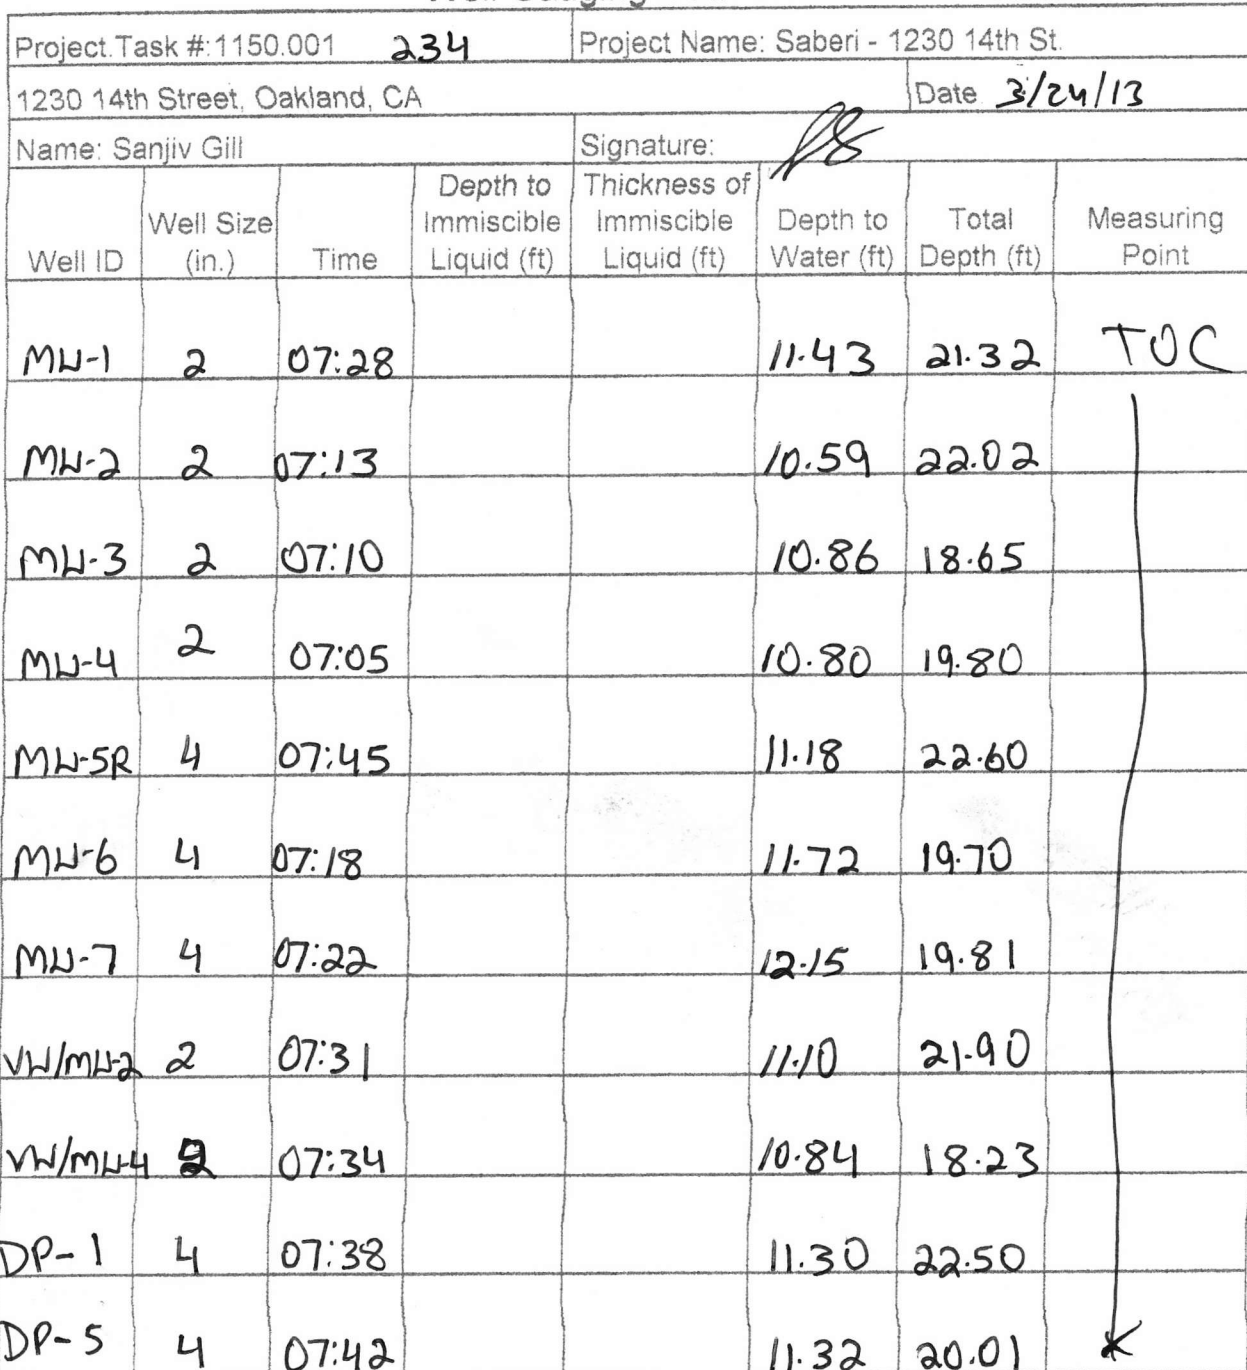 Project.Task #:1150.001 234 Project Name: Saberi - 1230 14th St.
1230 14th Street, Oakland, CA Date 3/24/13
Name: Sanjiv Gill Signature:
Well ID Well Size (in.) Time Depth to Immiscible Liquid (ft) Thickness of Immiscible Liquid (ft) Depth to Water (ft) Total Depth (ft) Measuring Point
MW-1 2 07:28 11.43 21.32 TOC
MW-2 2 07:13 10.59 22.02
MW-3 2 07:10 10.86 18.65
MW-4 2 07:05 10.80 19.80
MW-5R 4 07:45 11.18 22.60
MW-6 4 07:18 11.72 19.70
MW-7 4 07:22 12.15 19.81
VW/MW-2 2 07:31 11.10 21.90
VW/MW-4 2 07:34 10.84 18.23
DP-1 4 07:38 11.30 22.50
DP-5 4 07:42 11.32 20.01